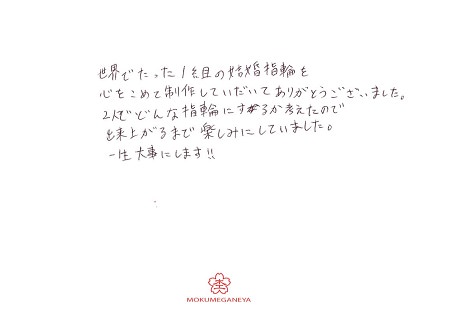 世界でたった1組の結婚指輪を
心をこめて制作していだいてありがとうございました。
2人でどんな指輪にするか考えたので
出来上がるまで楽しみにしていました。
一生大事にします!!
MOKUMEGANEYA